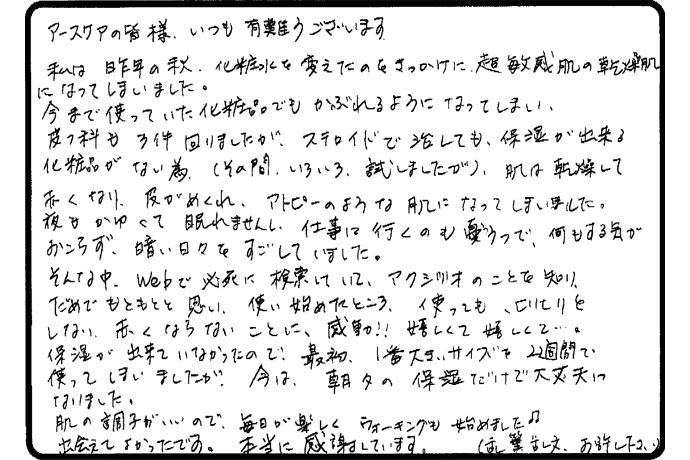 アースケアの皆様、いつも有難うございます
私は昨年の秋、化粧水を変えたのをきっかけに、超敏感肌の乾燥肌
になってしまいました。
今まで使っていた化粧品でもかぶれるようになってしまい、
皮フ科も3件回りましたが、ステロイドで治しても、保湿が出来る
化粧品がない為、(その間、いろいろ、試しましたが)、肌は乾燥して
赤くなり、皮がめくれ、アトピーのような肌になってしまいました。
夜もかゆくて眠れませんし、仕事に行くのも憂うつで、何もする気が
おこらず、暗い日々をすごしていました。
そんな中、Webで必死に検索していて、アクシリオのことを知り、
だめでもともとと思い、使い始めたところ、使っても、ヒリヒリを
しない、赤くならないことに、感動!! 嬉しくて嬉しくて…。
保湿が出来ていなかったので、最初、1番大きいサイズを2週間で
使ってしまいましたが、今は、朝夕の保湿だけで大丈夫に
なりました。
肌の調子がいいので、毎日が楽しくウォーキングも始めました♪
出会えてよかったです。本当に感謝しています。(走り書きで、お許し下さい)